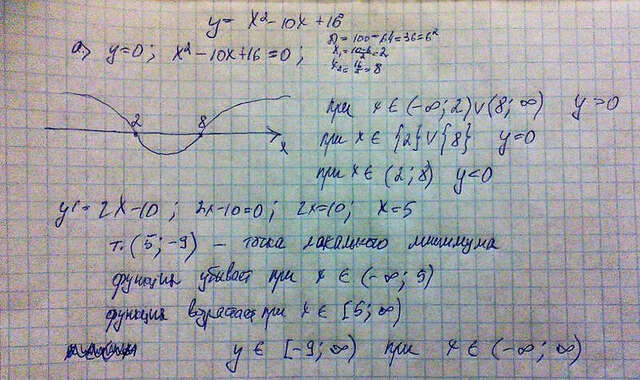 y = x² - 10x + 16
a) y=0; x² - 10x + 16 = 0;
D = 100 - 64 = 36 = 6²
x₁ = (10-6)/2 = 2
x₂ = 16/2 = 8
2 8 x
при x ∈ (-∞; 2) ∨ (8; ∞) y > 0
при x ∈ {2} ∨ {8} y = 0
при x ∈ (2; 8) y < 0
y' = 2x - 10; 2x - 10 = 0; 2x = 10; x = 5
т. (5; -9) — точка локального минимума
функция убывает при x ∈ (-∞; 5)
функция возрастает при x ∈ [5; ∞)
y ∈ [-9; ∞) при x ∈ (-∞; ∞)